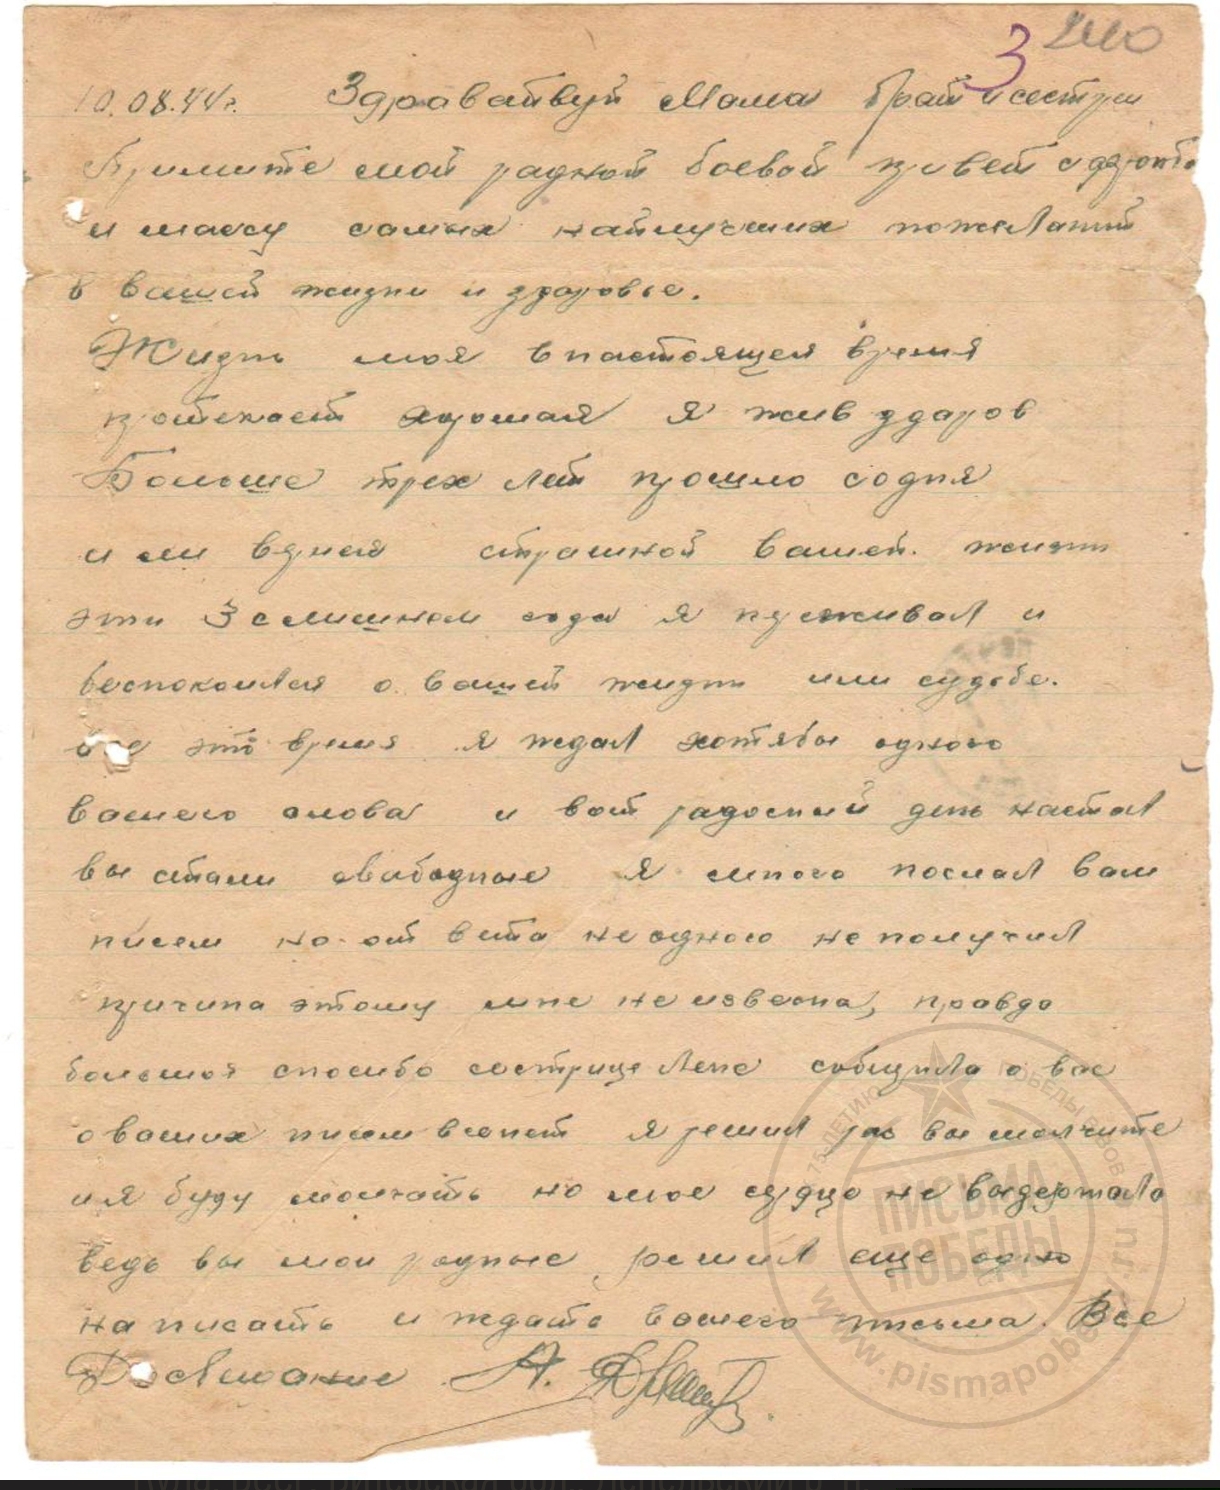 3
10.08.44г. Здраваствуй Мама брат и сестры
Примите мой радной боевой привет с фронта
и массу самых найлучших пожеланий
в вашей жизни и здаровье.
Жизнь моя в настоящея время
протекает хорошая я жив здаров
Больше трех лет прошло содня
вашей жизни
эти 3 слишнем года я переживал и
беспокоился о вашей жизни или судьбе.
все это время я ждал хотябы одного
вашего слова и вот радосний день настал
вы стали свабодные я много послал вам
писем но ответа не одного не получил
причина этому мне не извесна, правда
большое спосибо сестрице Лене собщила о вас
о ваших писем всенет я решил раз вы молчите
и я буду молчать но мое сердце не выдержало
ведь вы мои родные, решил еще одно
написать и ждать вашего письма. Все
Досвидание А.
75-ЛЕТИЮ ПОБЕДЫ
ПИСЬМА
ПОБЕДЫ
www.pismapobedy.ru